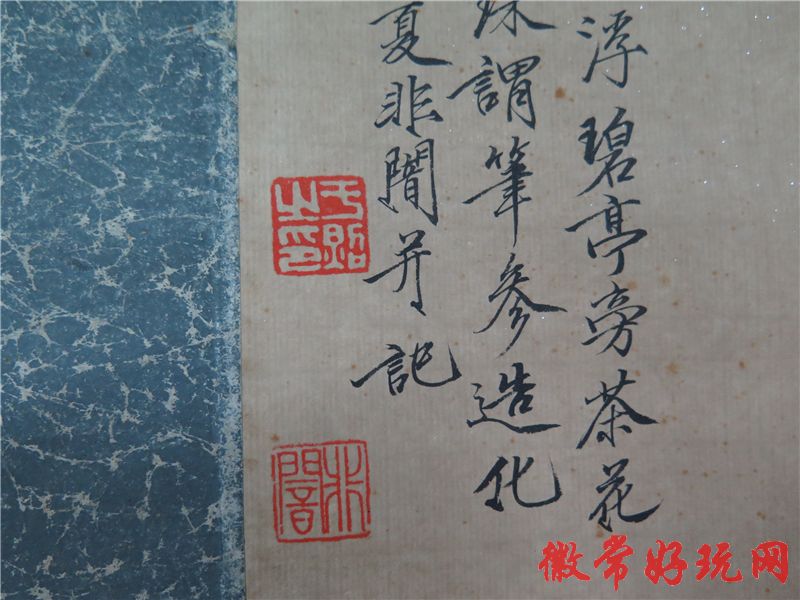 浮碧亭旁茶花
殊謂筆參造化
夏非闇并記
于照之印
非闇
徽常好玩网